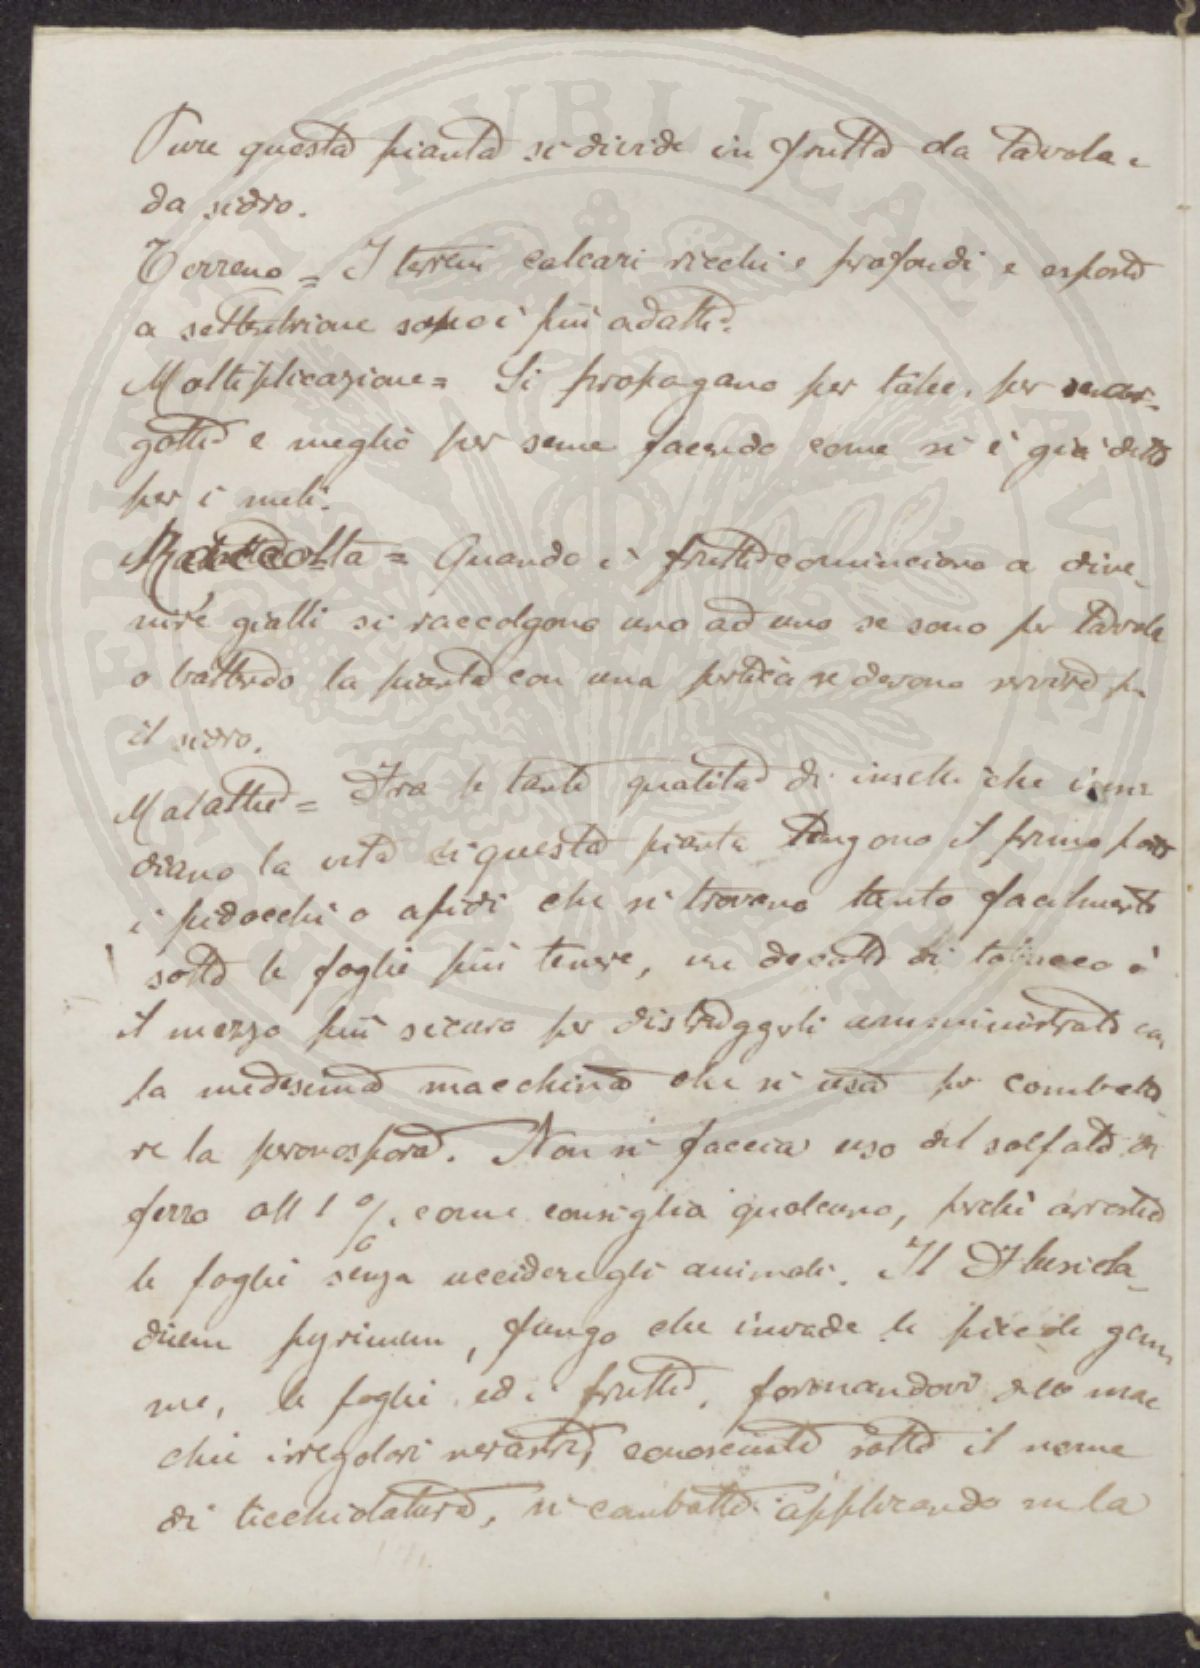 Pure questa pianta si divide in frutta da tavola e
da sidro.
Terreno = I terreni calcari ricchi e profondi e esposti
a settentrione sono i più adatti.
Moltiplicazione = Si propagano per talee, per
gotti e meglio per seme facendo come si è già detto
per i meli.
Raccolta = Quando i frutti cominciono a dive-
nire gialli si raccolgono uno ad uno se sono per tavola
o battendo la pianta con una pertica se devono servire per
il sidro.
Malattie = Fra le tante qualità di insetti che insi
diano la vita di questa pianta tengono il primo posto
i pidocchi o afidi che si trovano tanto facilmente
sotto le foglie più tenere, un decotto di tabacco è
il mezzo più sicuro per distruggerli amministrato con
la medesima macchina che si usa per combatte
re la peronospora. Non si faccia uso del solfato di
ferro all 1 %, come consiglia qualcuno, perchè arrostie
le foglie senza uccidere gli animali. Il Flusicla-
dium pyrinum, fungo che invade le piccole gem
me, le foglie ed i frutti, formandovi delle mac
chie irregolari nerastre, conosciute sotto il nome
di ticchiolatura, si combatte applicando su la
PERUSIAE AUGUSTAE
PUBLICAE